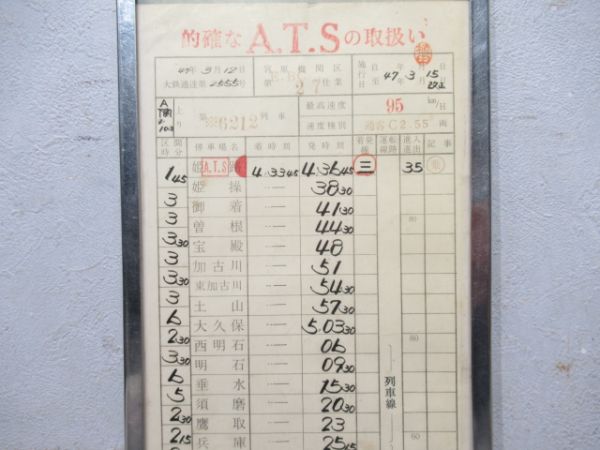 的確な A.T.S の取扱い
47年3月12日
大鉄達注第2555号
宮原機関区
第 27 仕業
施行 自 年 月 日
至 47.3.15
上り
第 6212 列車
最高速度 95 km/h
速度種別 通客C2.55 両
区間時分 停車場名 着時刻 発時刻 着発線 運転線路 進入進出 記事
1 45 姫 A.T.S 4.33 45 4.36 45 三 35
姫操 38 30
3 御着 41 30
3 曽根 44 30
3 30 宝殿 48
3 加古川 51
3 30 東加古川 54 30
3 土山 57 30
6 大久保 5.03 30
2 30 西明石 06
3 30 明石 09 30
6 垂水 15 30
5 須磨 20 30
2 30 鷹取 23
2 15 兵庫 25 15
列車線
80
60